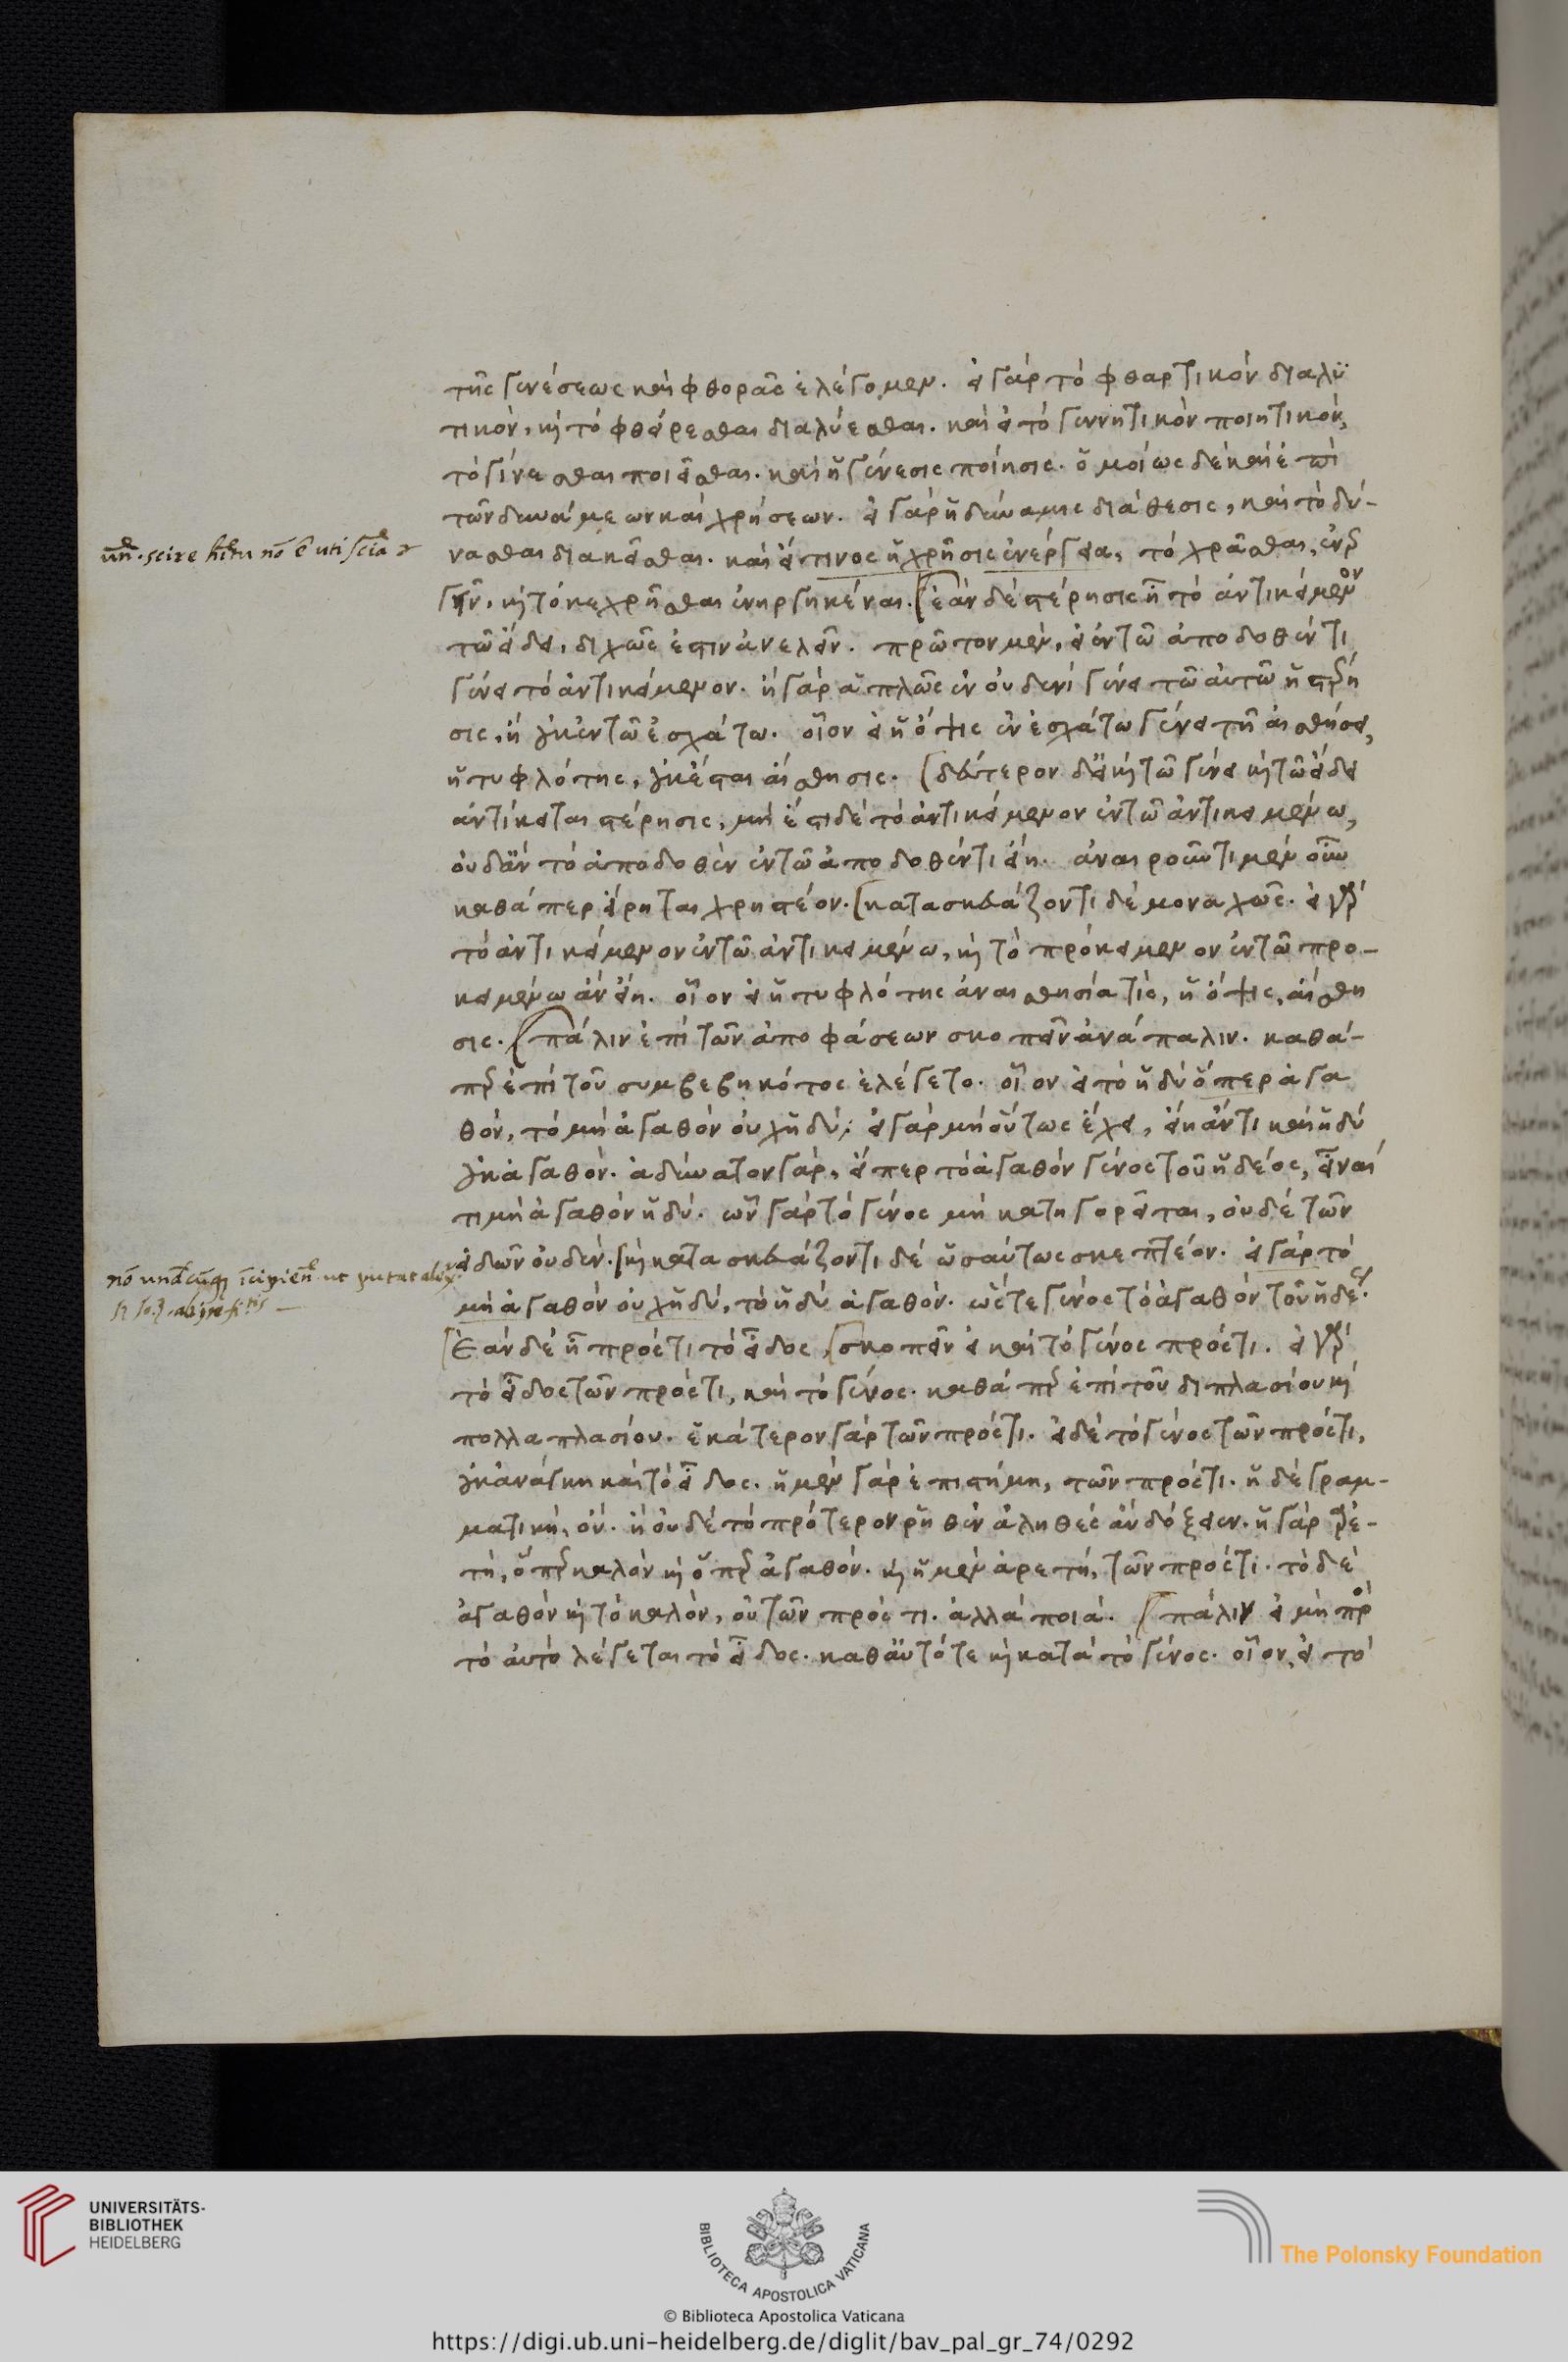 τῆς γενέσεως καὶ φθορᾶς ἐλέγομεν. εἰ γὰρ τὸ φθαρτικὸν διαλυ
τικὸν, κὶ τὸ φθείρεσθαι διαλύεσθαι. καὶ εἰ τὸ γεννητικὸν ποιητικόν,
τὸ γίνεσθαι ποιεῖσθαι. καὶ ἡ γένεσις ποίησις. ὁμοίως δὲ καὶ ἐπὶ
τῶν δυνάμεων καὶ χρήσεων. εἰ γὰρ ἡ δύναμις διάθεσις, καὶ τὸ δύ-
νασθαι διακεῖσθαι. καὶ εἴ τινος ἡ χρῆσις ἐνέργεια, τὸ χρᾶσθαι, ἐνερ
γεῖν, κὶ τὸ κεχρῆσθαι ἐνηργηκέναι. [ἐὰν δὲ στέρησις ἦ τὸ ἀντικείμενον
τῶ εἴδει, διχῶς ἔστιν ἀνελεῖν. πρῶτον μὲν, εἰ ἐν τῶ ἀποδοθέντι
γένει τὸ ἀντικείμενον. ἢ γὰρ ἁπλῶς ἐν οὐδενὶ γένει τῶ αὐτῶ ἡ στέρη
σις, ἢ οὐκ ἐν τῶ ἐσχάτω. οἷον εἰ ἡ ὄψις ἐν ἐσχάτω γένει τῆ αἰσθήσει,
ἡ τυφλότης, οὐκ ἔσται αἴσθησις. [δεύτερον δ' εἰ κὶ τῶ γένει κὶ τῶ εἴδει
ἀντίκειται στέρησις, μὴ ἔστι δὲ τὸ ἀντικείμενον ἐν τῶ ἀντικειμένω,
οὐδ' ἂν τὸ ἀποδοθὲν ἐν τῶ ἀποδοθέντι εἴη. ἀναιροῦντι μὲν οὖν
καθάπερ εἴρηται χρηστέον. [κατασκευάζοντι δὲ μοναχῶς. εἰ γὰρ
τὸ ἀντικείμενον ἐν τῶ ἀντικειμένω, κὶ τὸ προκείμενον ἐν τῶ προ-
κειμένω ἂν εἴη. οἷον εἰ ἡ τυφλότης ἀναισθησία τίς, ἡ ὄψις, αἴσθη
σις. [πάλιν ἐπὶ τῶν ἀποφάσεων σκοπεῖν ἀνάπαλιν. καθά-
περ ἐπὶ τοῦ συμβεβηκότος ἐλέγετο. οἷον εἰ τὸ ἡδὺ ὅπερ ἀγα
θόν, τὸ μὴ ἀγαθὸν οὐχ ἡδύ. εἰ γὰρ μὴ οὕτως ἔχει, εἴη ἄν τι καὶ ἡδὺ
οὐκ ἀγαθόν. ἀδύνατον γάρ, εἴπερ τὸ ἀγαθὸν γένος τοῦ ἡδέος, εἶναί
τι μὴ ἀγαθὸν ἡδύ. ὧν γὰρ τὸ γένος μὴ κατηγορεῖται, οὐδὲ τῶν
εἰδῶν οὐδέν. [κὶ κατασκευάζοντι δὲ ὡσαύτως σκεπτέον. εἰ γὰρ τὸ
μὴ ἀγαθὸν οὐχ ἡδύ, τὸ ἡδὺ ἀγαθόν. ὥστε γένος τὸ ἀγαθὸν τοῦ ἡδέος.
[Ἐὰν δὲ ἦ πρός τι τὸ εἶδος, [σκοπεῖν εἰ καὶ τὸ γένος πρός τι. εἰ γὰρ
τὸ εἶδος τῶν πρός τι, καὶ τὸ γένος. καθάπερ ἐπὶ τοῦ διπλασίου κὶ
πολλαπλασίου. ἑκάτερον γὰρ τῶν πρός τι. εἰ δὲ τὸ γένος τῶν πρός τι,
οὐκ ἀνάγκη καὶ τὸ εἶδος. ἡ μὲν γὰρ ἐπιστήμη, τῶν πρός τι. ἡ δὲ γραμ-
ματική, οὔ. ἢ οὐδὲ τὸ πρότερον ῥηθὲν ἀληθὲς ἂν δόξειεν. ἡ γὰρ ἀρε-
τή, ὅπερ καλὸν κὶ ὅπερ ἀγαθόν. κὶ ἡ μὲν ἀρετή, τῶν πρός τι. τὸ δὲ
ἀγαθὸν κὶ τὸ καλὸν, οὐ τῶν πρός τι. ἀλλὰ ποιά. [πάλιν εἰ μὴ πρὸς
τὸ αὐτὸ λέγεται τὸ εἶδος. καθ' αὑτό τε κὶ κατὰ τὸ γένος. οἷον, εἰ τὸ
scire
uti
ut putat alex.
UNIVERSITÄTS-
BIBLIOTHEK
HEIDELBERG
BIBLIOTECA APOSTOLICA VATICANA
The Polonsky Foundation
© Biblioteca Apostolica Vaticana
https://digi.ub.uni-heidelberg.de/diglit/bav_pal_gr_74/0292